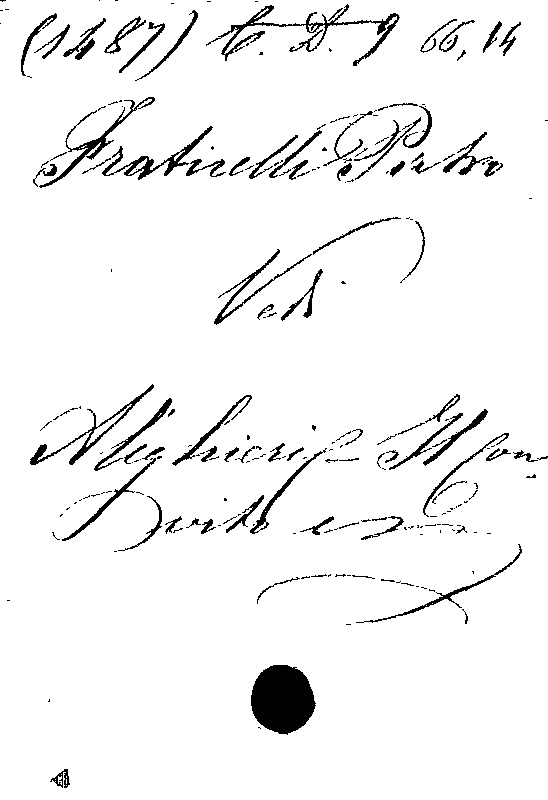 (1487) C. D. 9 66,14
Fraticelli Pietro
Vedi
Alighieri Il Con
vito